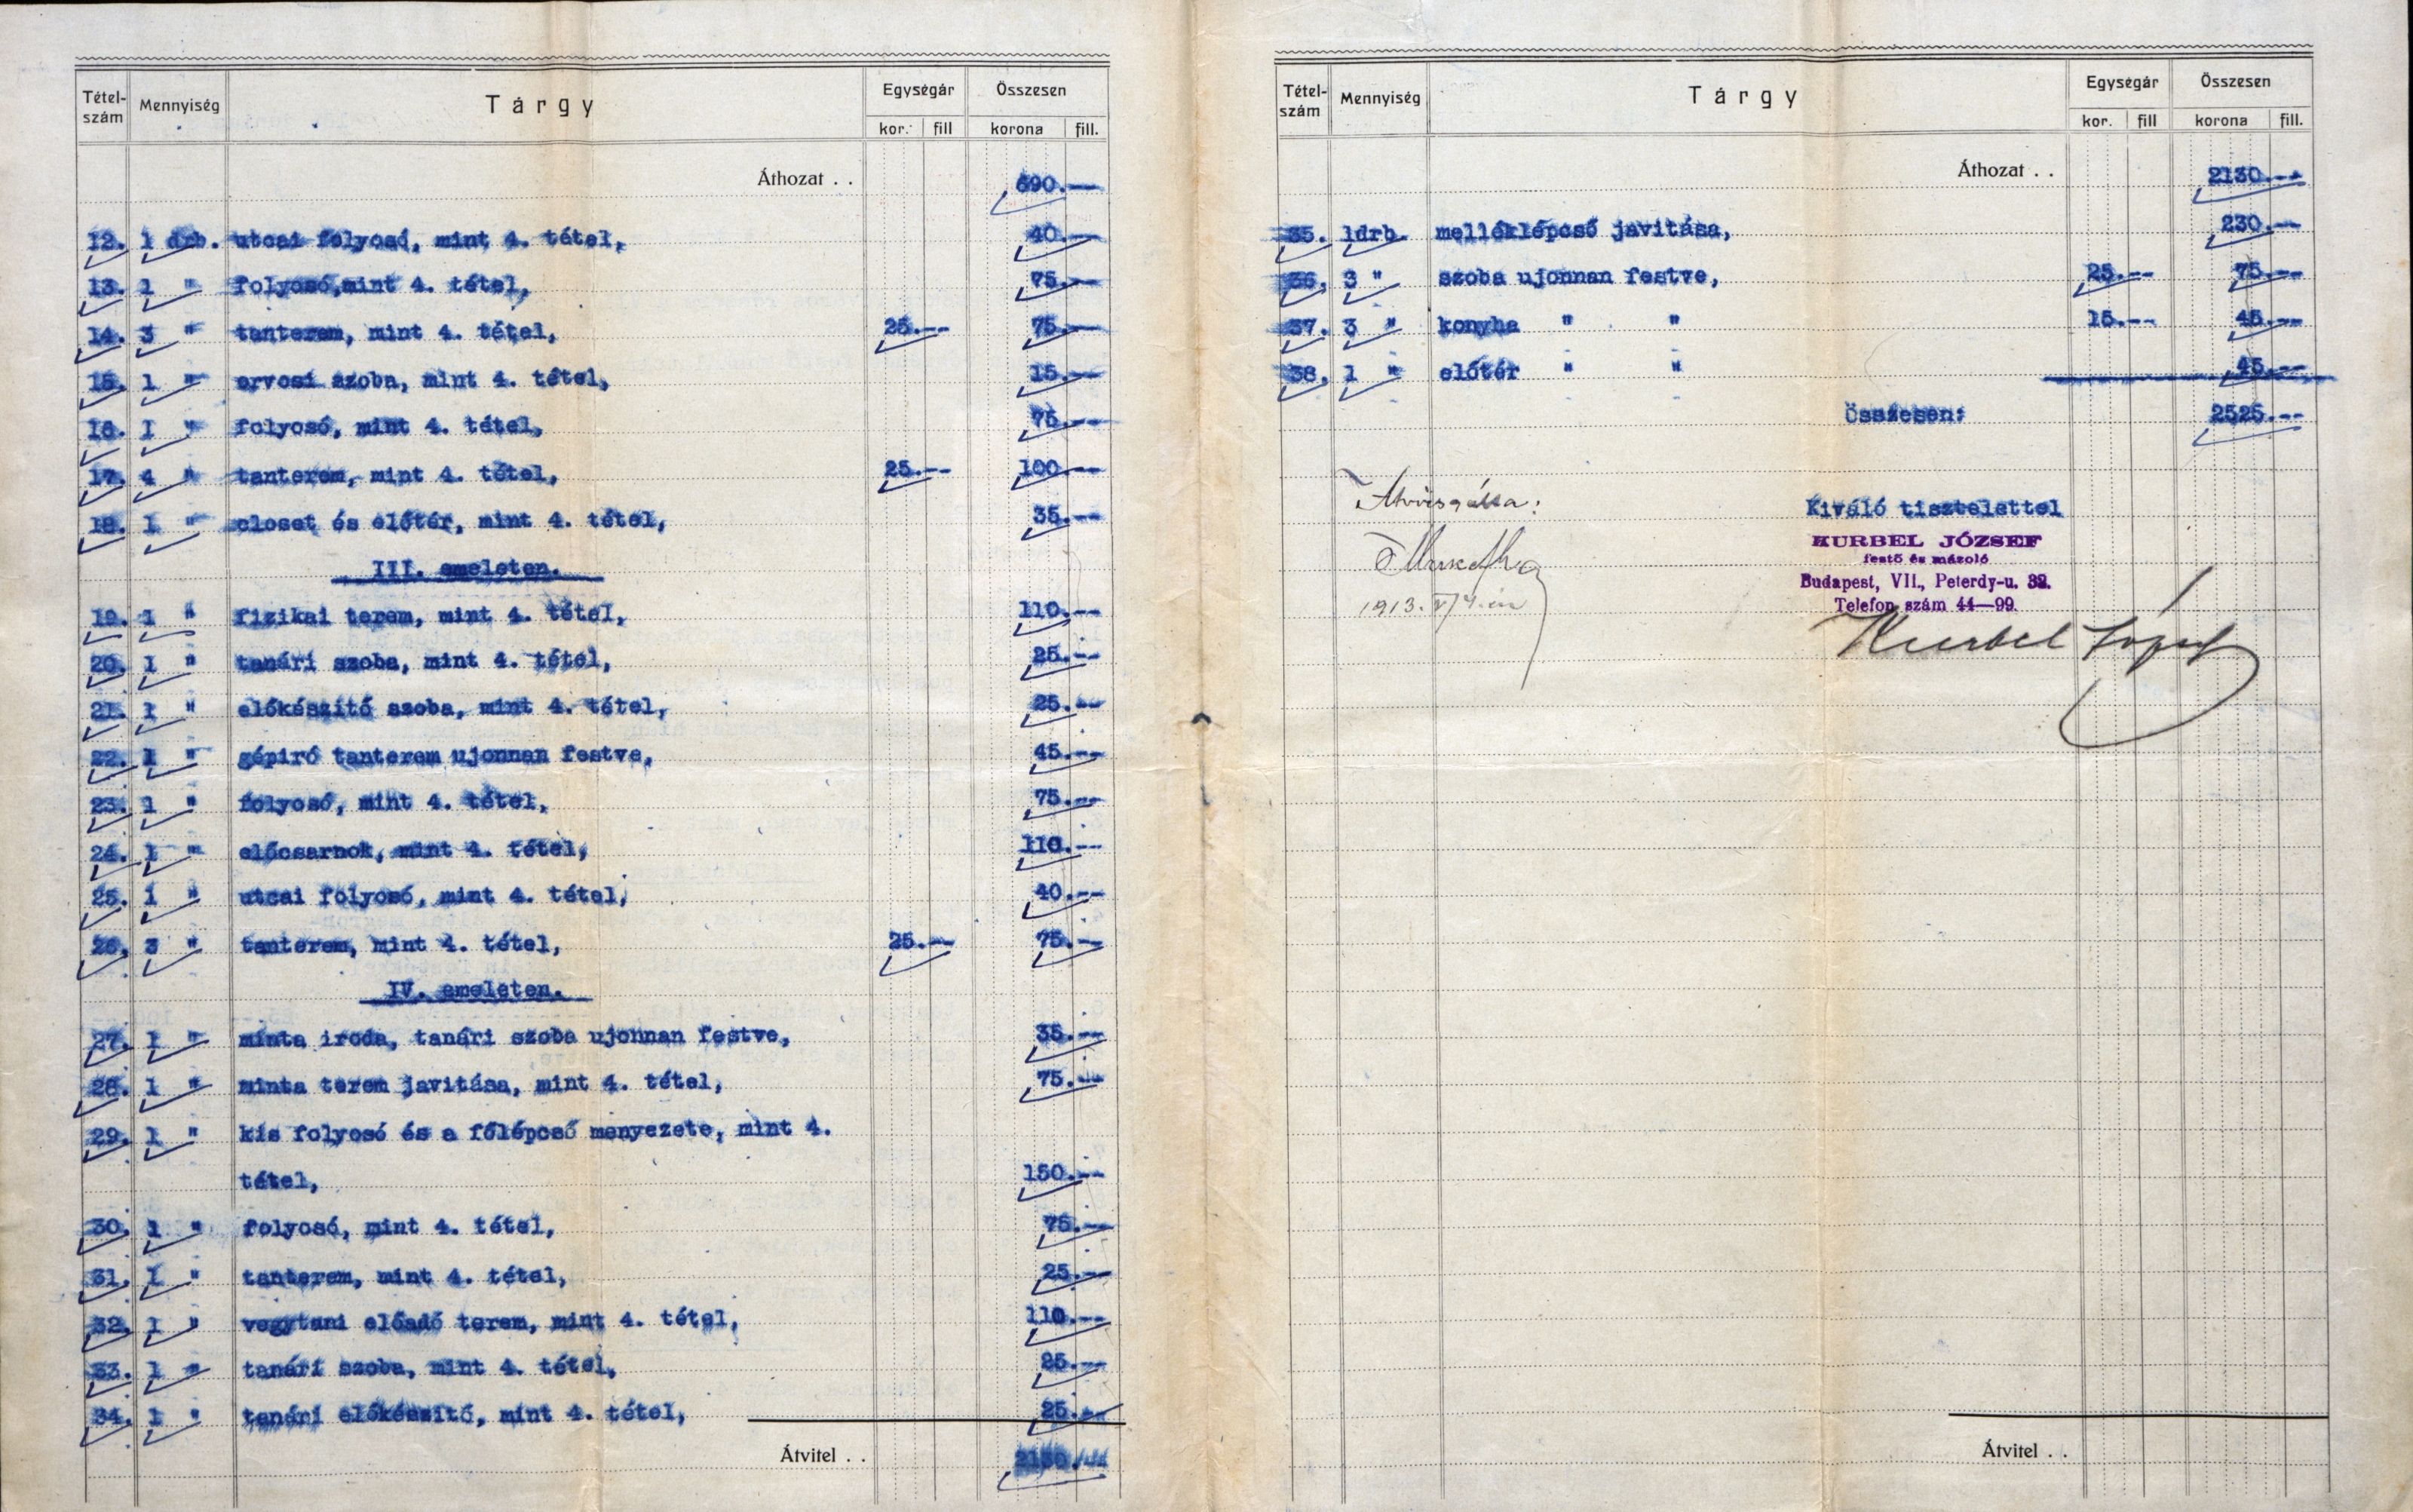 Tétel-
szám
Mennyiség
Tárgy
Egységár
Összesen
kor. fill korona fill.
Áthozat . . 690.--
12. 1 drb. utcai folyosó, mint 4. tétel, 40.--
13. 1 " folyosó,mint 4. tétel, 75.--
14. 3 " tanterem, mint 4. tétel, 25.-- 75.--
15. 1 " orvosi szoba, mint 4. tétel, 15.--
16. 1 " folyosó, mint 4. tétel, 75.--
17. 4 " tanterem, mint 4. tétel, 25.-- 100.--
18. 1 " closet és előtér, mint 4. tétel, 35.--
III. emeleten.
19. 1 " fizikai terem, mint 4. tétel, 110.--
20. 1 " tanári szoba, mint 4. tétel, 25.--
21. 1 " előkészitő szoba, mint 4. tétel, 25.--
22. 1 " gépiró tanterem ujonnan festve, 45.--
23. 1 " folyosó, mint 4. tétel, 75.--
24. 1 " előcsarnok, mint 4. tétel, 110.--
25. 1 " utcai folyosó, mint 4. tétel, 40.--
26. 3 " tanterem, mint 4. tétel, 25.-- 75.--
IV. emeleten.
27. 1 " minta iroda, tanári szoba ujonnan festve, 35.--
28. 1 " minta terem javitása, mint 4. tétel, 75.--
29. 1 " kis folyosó és a főlépcső menyezete, mint 4.
tétel, 150.--
30. 1 " folyosó, mint 4. tétel, 75.--
31. 1 " tanterem, mint 4. tétel, 25.--
32. 1 " vegytani előadó terem, mint 4. tétel, 110.--
33. 1 " tanári szoba, mint 4. tétel, 25.--
34. 1 " tanári előkészitő, mint 4. tétel, 25.--
Átvitel . . 2130.--
Tétel-
szám
Mennyiség
Tárgy
Egységár
Összesen
kor. fill korona fill.
Áthozat . . 2130.--
35. 1drb. melléklépcső javitása, 230.--
36. 3 " szoba ujonnan festve, 25.-- 75.--
37. 3 " konyha " " 15.-- 45.--
38. 1 " előtér " " 45.--
Összesen: 2525.--
Átvizsgálta:
1913.
Kiváló tisztelettel
KURBEL JÓZSEF
festő és mázoló
Budapest, VII., Peterdy-u. 32.
Telefon szám 44—99.
Kurbel József
Átvitel . .